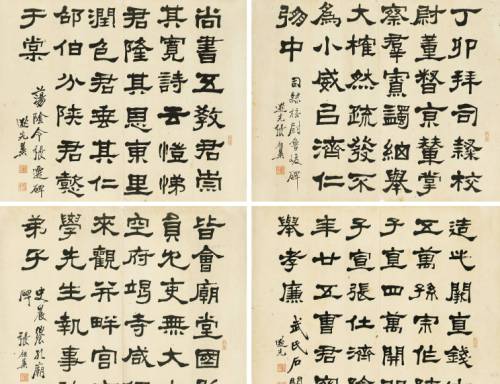 丁卯拜司隸校
尉董督京輦掌
察羣寮蠲細舉
大榷然疏發不
為小威㠯濟仁
弸中
司隸校尉魯峻碑
逖先張祖翼
尚書五教君崇
其寬詩云愷悌
君隆其恩東里
潤色君垂其仁
邵伯分陝君懿
于棠
蕩陰令張遷碑
逖先張祖翼
造此闕直錢
五萬孫宗作
子直四萬開
子宣張仕濟陰
年廿五曹府君
舉孝廉
武氏石闕
逖先
皆會廟堂國
員冗吏無大
空府竭寺咸
來觀并畔宮
學先生執事
弟子
史晨饗孔廟
碑 張祖翼